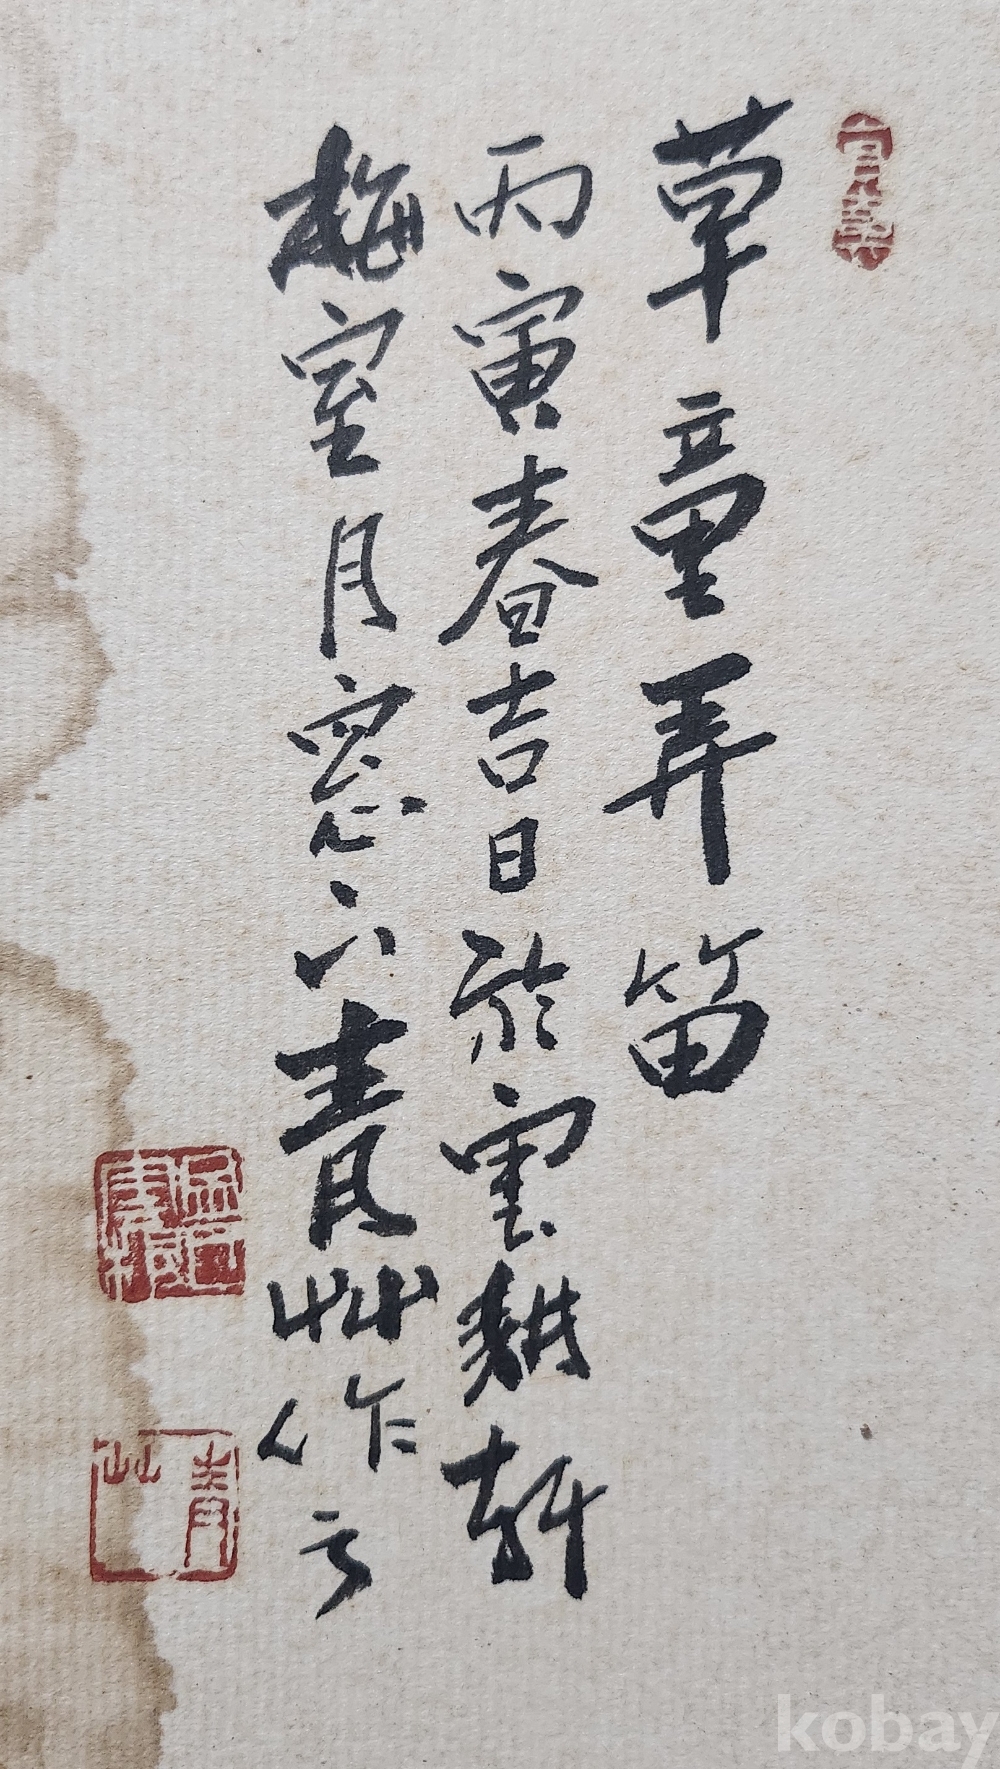 草童弄笛
丙寅春吉日於雲耕軒
梅室月窓下青艸作之
青艸
kobay